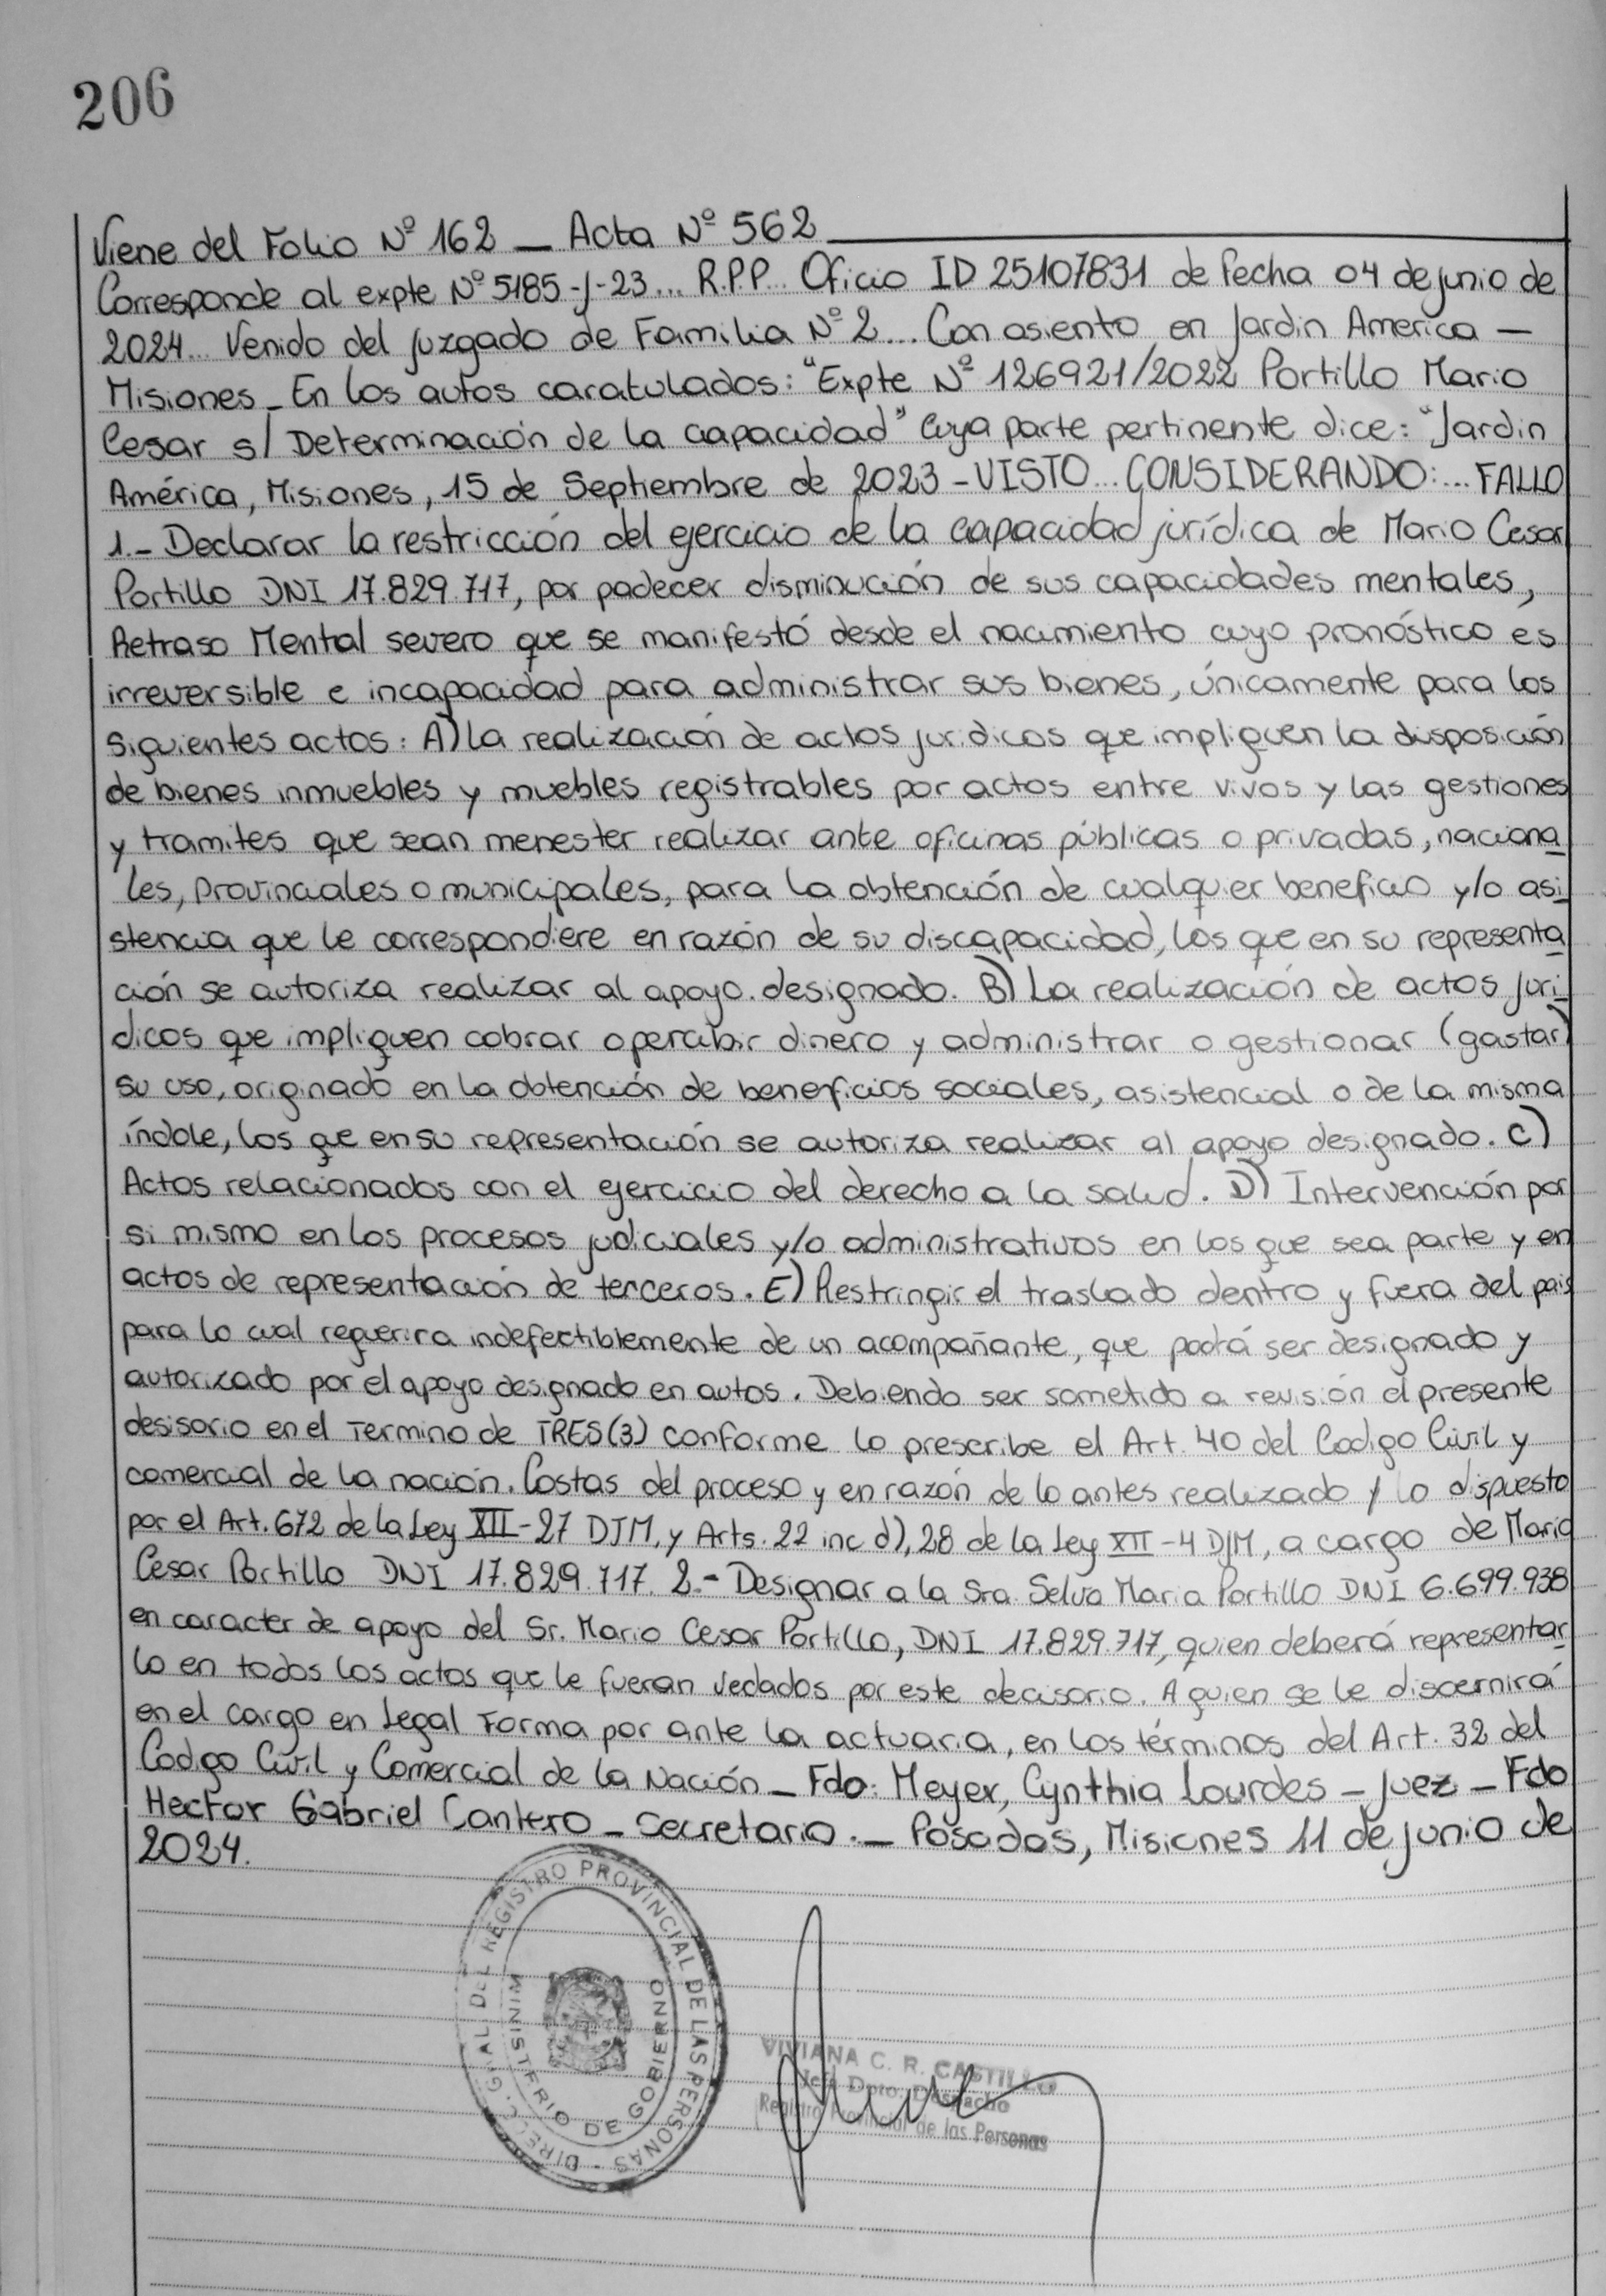 206
Viene del Folio Nº 162 _ Acta Nº 562
Corresponde al expte Nº 5185-J-23... R.P.P... Oficio ID 25107831 de Fecha 04 de junio de
2024... Venido del Juzgado de Familia Nº 2... Con asiento en Jardin America —
Misiones_ En los autos caratulados: "Expte Nº 126921/2022 Portillo Mario
Cesar s/ Determinación de la capacidad" Cuya parte pertinente dice: "Jardin
América, Misiones, 15 de Septiembre de 2023 - VISTO... CONSIDERANDO:... FALLO
1.- Declarar la restricción del ejercicio de la capacidad jurídica de Mario Cesar
Portillo DNI 17.829.717, por padecer disminución de sus capacidades mentales,
Retraso Mental severo que se manifestó desde el nacimiento cuyo pronóstico es
irreversible e incapacidad para administrar sus bienes, únicamente para los
siguientes actos: A) La realización de actos juridicos que impliquen la disposición
de bienes inmuebles y muebles registrables por actos entre vivos y las gestiones
y tramites que sean menester realizar ante oficinas públicas o privadas, naciona
les, provinciales o municipales, para la obtención de cualquier beneficio y/o asi
stencia que le correspondiere en razón de su discapacidad, los que en su representa
ción se autoriza realizar al apoyo. designado. B) La realización de actos juri
dicos que impliquen cobrar o percibir dinero y administrar o gestionar (gastar)
su uso, originado en la obtención de beneficios sociales, asistencial o de la misma
índole, los que en su representación se autoriza realizar al apoyo designado. C)
Actos relacionados con el ejercicio del derecho a la salud. D) Intervención por
si mismo en los procesos judiciales y/o administrativos en los que sea parte y en
actos de representación de terceros. E) Restringir el traslado dentro y fuera del pais
para lo cual requerira indefectiblemente de un acompañante, que podrá ser designado y
autorizado por el apoyo designado en autos. Debiendo ser sometido a revisión el presente
desisorio en el Termino de TRES (3) conforme lo prescribe el Art. 40 del Codigo Civil y
comercial de la nación. Costas del proceso y en razón de lo antes realizado y lo dispuesto
por el Art. 672 de la Ley XII-27 DJM, y Arts. 22 inc d), 28 de la Ley XII-4 DJM, a cargo de Mario
Cesar Portillo DNI 17.829.717. 2.- Designar a la Sra. Selva Maria Portillo DNI 6.699.938
en caracter de apoyo del Sr. Mario Cesar Portillo, DNI 17.829.717, quien deberá representar
lo en todos los actos que le fueran vedados por este decisorio. A quien se le discernirá
en el cargo en Legal Forma por ante la actuaria, en los términos del Art. 32 del
Codigo Civil y Comercial de la Nación _ Fdo: Meyer, Cynthia Lourdes - Juez - Fdo
Hector Gabriel Cantero - Secretario. _ Posadas, Misiones 11 de junio de
2024.
DIRECC. GRAL DEL REGISTRO PROVINCIAL DE LAS PERSONAS -
MINISTERIO DE GOBIERNO
VIVIANA C. R. CASTILLO
Jefe Dpto. Despacho
Registro Provincial de las Personas